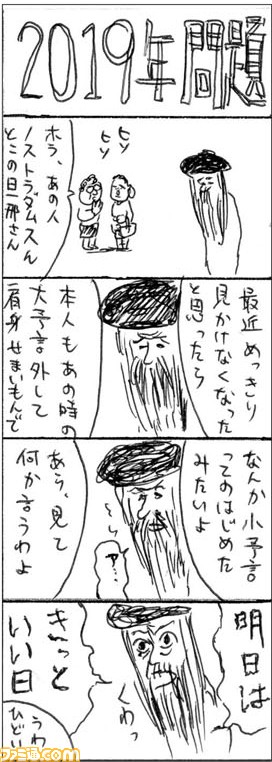 2019年問題
ヒソ
ヒソ
ホラ、あの人
ノストラダムスん
とこの旦那さん
最近めっきり
見かけなくなった
と思ったら
本人もあの時の
大予言外して
肩身せまいもんで
なんか小予言
ってのはじめた
みたいよ
あら、見て
何か言うわよ
ア…
明日は
くわっ
きーっと
いい日
うわ
ひどい
ファミ通.com